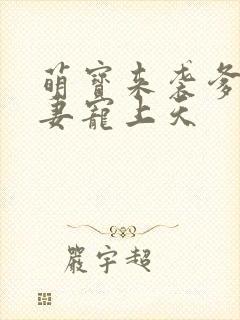 萌寶来袭爹
妻寵上天
嚴宇超